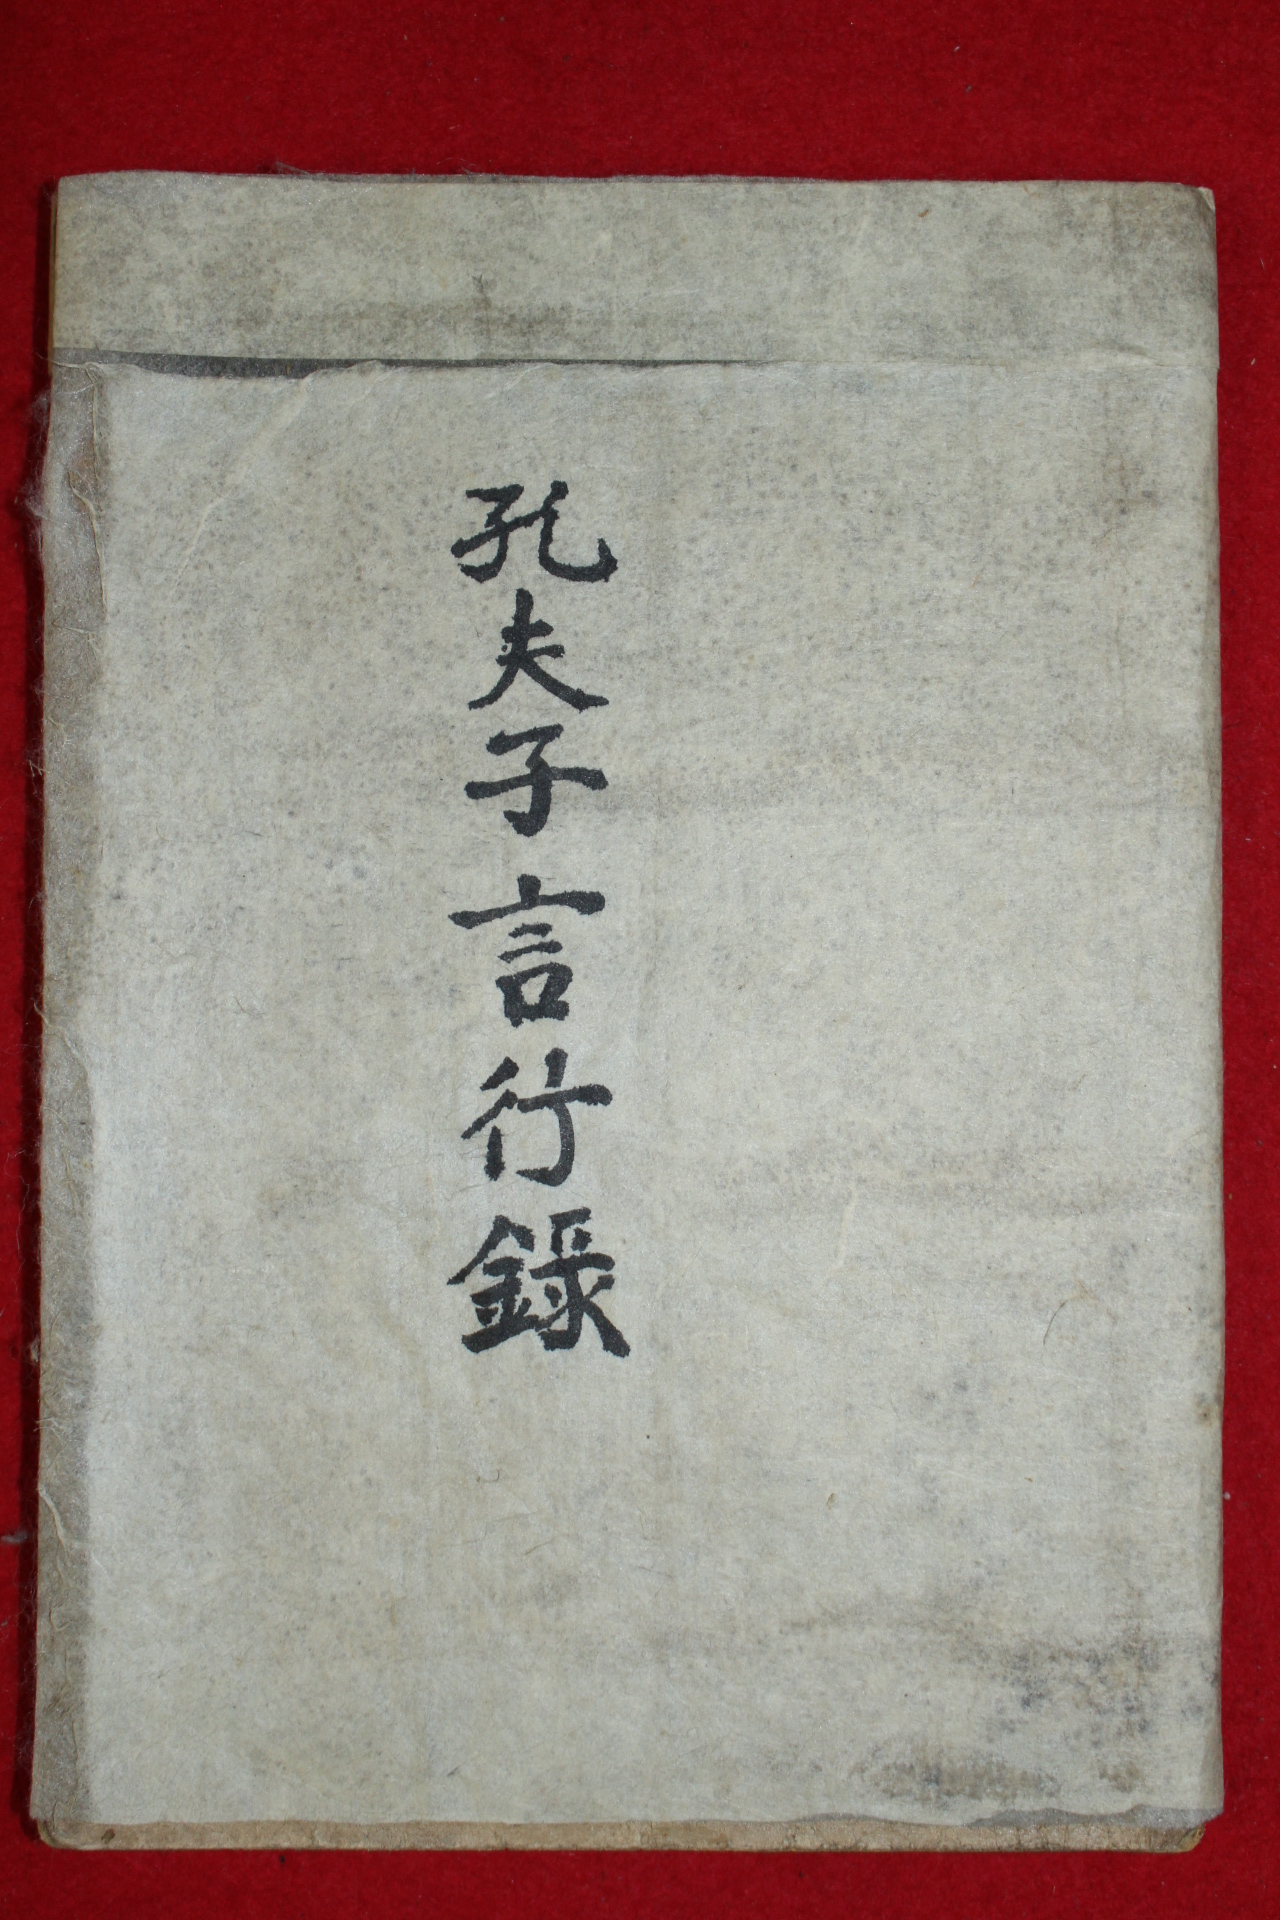 孔夫子言行錄